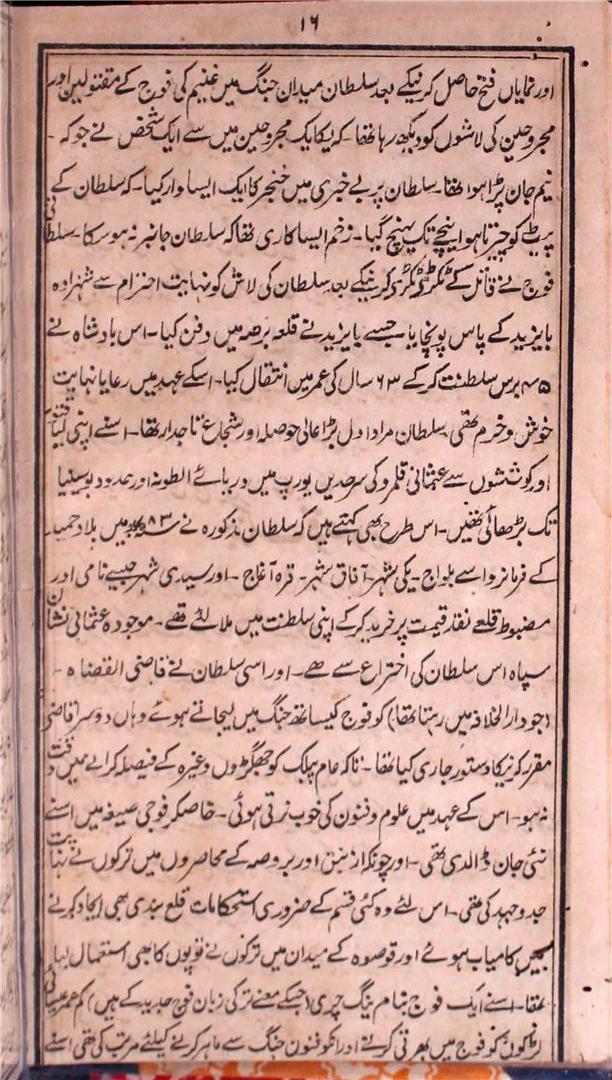 ۱۶
اور نمایاں فتح حاصل کرنیکے بعد سلطان میدان جنگ میں غنیم کی فوج کے مقتولین اور
مجروحین کی لاشوں کو دیکھ رہا تھا۔ کہ یکایک مجروحین میں سے ایک شخص نے جو کہ ۔
نیم جان پڑا ہوا تھا۔ سلطان پر بے خبری میں خنجر کا ایک ایسا وار کیا۔ کہ سلطان کے
پیٹ کو چیرتا ہوا نیچے تک پہنچ گیا۔ زخم ایسا کاری تھا کہ سلطان جانبر نہ ہو سکا۔ سلطانی
فوج نے قاتل کے ٹکڑے ٹکڑے کرنیکے بعد سلطان کی لاش کو نہایت احترام سے شہزادہ
بایزید کے پاس پونچایا۔ جسے بایزید نے قلعہ برصہ میں دفن کیا۔ اس بادشاہ نے
برس سلطنت کر کے ۶۳ سال کی عمر میں انتقال کیا۔ اسکے عہد میں رعایا نہایت
خوش و خرم تھی۔ سلطان مراد اول بڑا عالی حوصلہ اور شجاع تاجدار تھا۔ اسنے اپنی لیاقت
اور کوششوں سے عثمانی قلمرو کی سرحدیں یورپ میں دریائے الطونہ اور حدود بوسینیا
تک بڑھائی تھیں۔ اس طرح بھی کہتے ہیں کہ سلطان مذکورہ نے ۷۸۳ میں بلاد حمید
کے فرمانروا سے بلواج۔ یکی شہر۔ آفاق شہر۔ قرہ آغاج۔ اور سیدی شہر جیسے نامی اور
مضبوط قلعے نقد قیمت پر خرید کر کے اپنی سلطنت میں ملا لئے تھے۔ موجودہ عثمانی نشان
سپاہ اس سلطان کی اختراع سے ہے۔ اور اسی سلطان نے قاضی القضاہ ۔
(جو دارالخلافہ میں رہتا تھا) کو فوج کیساتھ جنگ میں لیجاتے ہوئے وہاں دوسرا قاضی
مقرر کرنیکا دستور جاری کیا تھا۔ تاکہ عام پبلک کو جھگڑوں وغیرہ کے فیصلہ کرانے میں دقت
نہ ہو۔ اس کے عہد میں علوم و فنون کی خوب ترقی ہوئی۔ خاصکر فوجی صیغہ میں اسنے
نئی جان ڈالدی تھی۔ اور چونکہ ازنیق اور بروصہ کے محاصروں میں ترکوں نے نہایت
جدوجہد کی تھی۔ اس لئے وہ کئی قسم کے ضروری استحکامات قلع بندی بھی ایجاد کرنے
میں کامیاب ہوئے اور قوصوہ کے میدان میں ترکوں نے توپوں کا بھی استعمال کیا
تھا۔ اسنے ایک فوج بنام ینگ چری (جسکے معنے ترکی زبان فوج جدید کے ہیں) کم عمر عیسائی
لڑکوں کو فوج میں بھرتی کرتے اور انکو فنون جنگ سے ماہر کرنے کیلئے مرتب کی تھی اسنے